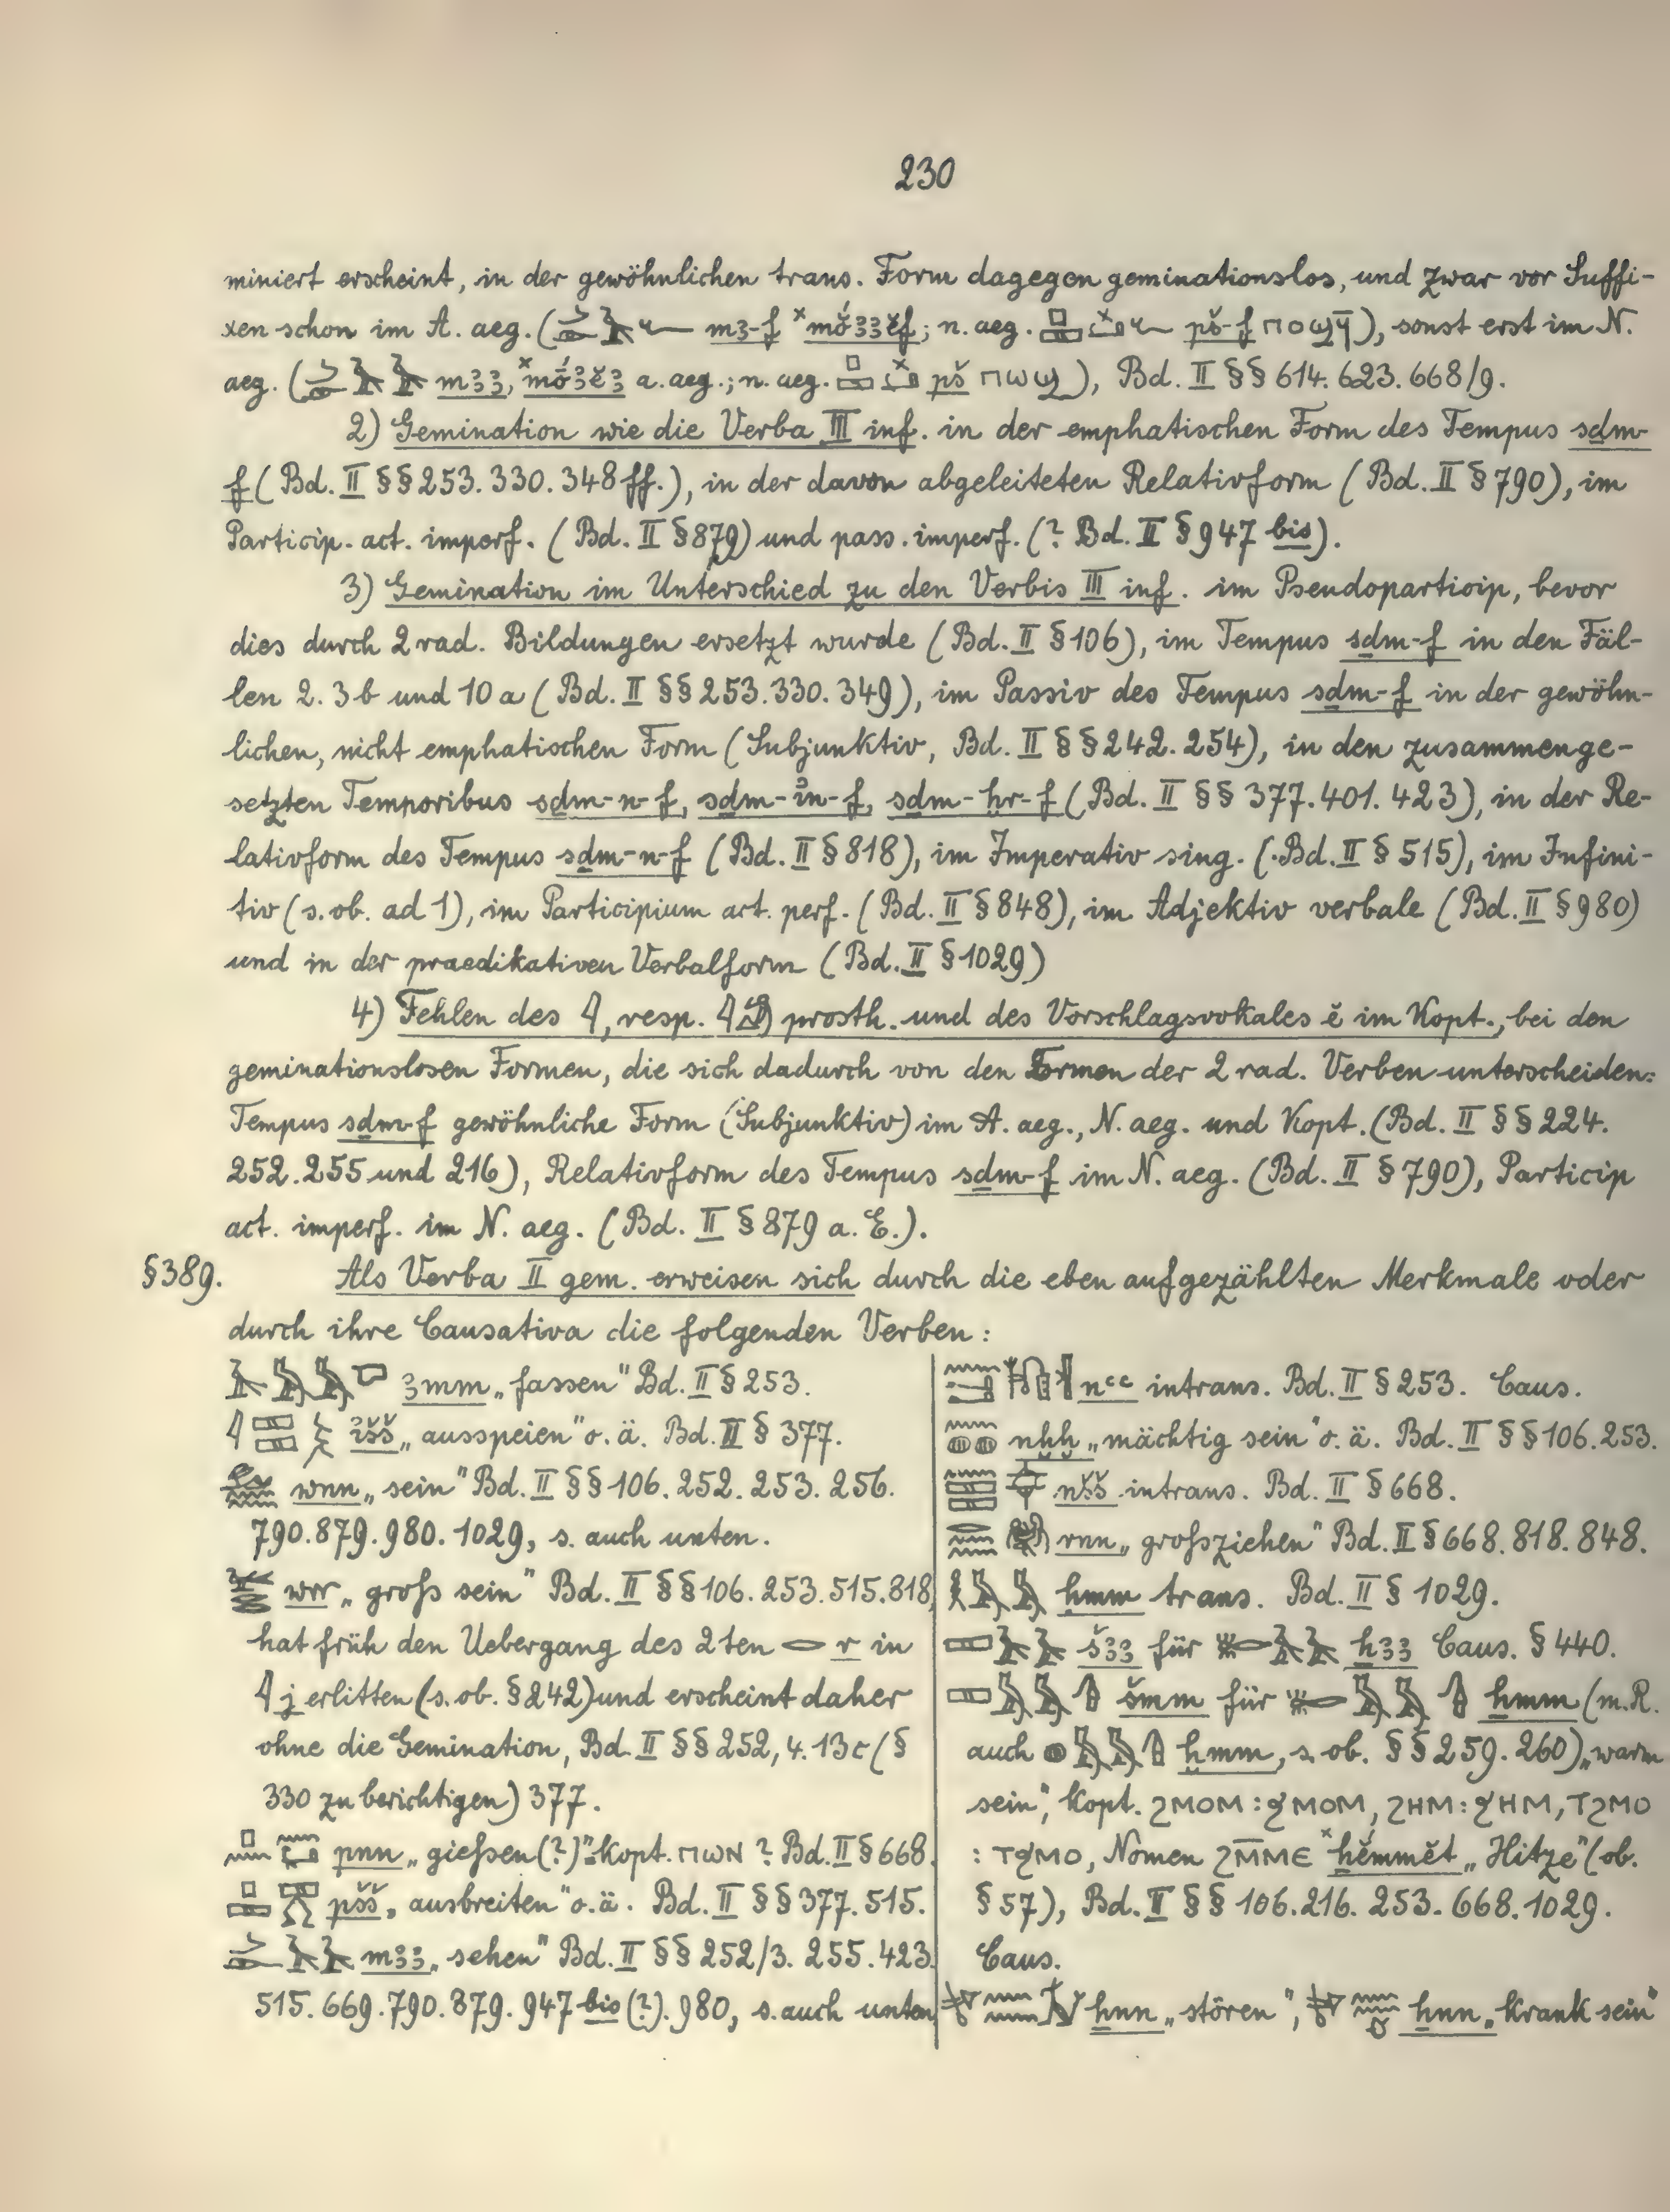 230
miniert erscheint, in der gewöhnlichen trans. Form dagegen geminationslos, und zwar vor Suffi-
xen schon im A. aeg. ( mꜣ-f ˣmŏ́ꜣꜣĕf; n. aeg. pš-f ⲡⲟϣϥ̄), sonst erst im N.
aeg. ( mꜣꜣ, ˣmŏ́ꜣĕꜣ a. aeg.; n. aeg. pš ⲡⲱϣ), Bd. II §§ 614. 623. 668/9.
2) Gemination wie die Verba III inf. in der emphatischen Form des Tempus sḏm-
f (Bd. II §§ 253. 330. 348 ff.), in der davon abgeleiteten Relativform (Bd. II § 790), im
Particip. act. imperf. (Bd. II § 879) und pass. imperf. (? Bd. II § 947 bis).
3) Gemination im Unterschied zu den Verbis III inf. im Pseudoparticip, bevor
dies durch 2 rad. Bildungen ersetzt wurde (Bd. II § 106), im Tempus sḏm-f in den Fäl-
len 2. 3b und 10a (Bd. II §§ 253. 330. 349), im Passiv des Tempus sḏm-f in der gewöhn-
lichen, nicht emphatischen Form (Subjunktiv, Bd. II §§ 242. 254), in den zusammenge-
setzten Temporibus sḏm-n-f, sḏm-ꞽn-f, sḏm-ḫr-f (Bd. II §§ 377. 401. 423), in der Re-
lativform des Tempus sḏm-n-f (Bd. II § 818), im Imperativ sing. (Bd. II § 515), im Infini-
tiv (s. ob. ad 1), im Participium act. perf. (Bd. II § 848), im Adjektiv verbale (Bd. II § 980)
und in der praedikativen Verbalform (Bd. II § 1029)
4) Fehlen des 𓇋, resp. 𓇋 prosth. und des Vorschlagsvokales ĕ im Kopt., bei den
geminationslosen Formen, die sich dadurch von den Formen der 2 rad. Verben unterscheiden:
Tempus sḏm-f gewöhnliche Form (Subjunktiv) im A. aeg., N. aeg. und Kopt. (Bd. II §§ 224.
252. 255 und 216), Relativform des Tempus sḏm-f im N. aeg. (Bd. II § 790), Particip
act. imperf. im N. aeg. (Bd. II § 879 a. E.).
§ 389. Als Verba II gem. erweisen sich durch die eben aufgezählten Merkmale oder
durch ihre Causativa die folgenden Verben:
ꜣmm „fassen" Bd. II § 253.
ꞽšš „ausspeien" o. ä. Bd. II § 377.
wnn „sein" Bd. II §§ 106. 252. 253. 256.
790. 879. 980. 1029, s. auch unten.
wrr „groß sein" Bd. II §§ 106. 253. 515. 818,
hat früh den Uebergang des 2ten 𓂋 r in
𓇋 j erlitten (s. ob. § 242) und erscheint daher
ohne die Gemination, Bd. II §§ 252, 4. 13c (§
330 zu berichtigen) 377.
pnn „gießen (?)" kopt. ⲡⲱⲛ ? Bd. II § 668.
pšš „ausbreiten" o. ä. Bd. II §§ 377. 515.
mꜣꜣ „sehen" Bd. II §§ 252/3. 255. 423.
515. 669. 790. 879. 947 bis (?). 980, s. auch unten
nꜥꜥ intrans. Bd. II § 253. Caus.
nḫḫ „mächtig sein" o. ä. Bd. II §§ 106. 253.
nšš intrans. Bd. II § 668.
rnn „großziehen" Bd. II § 668. 818. 848.
ḥmm trans. Bd. II § 1029.
šꜣꜣ für ẖꜣꜣ Caus. § 440.
šmm für ẖmm (m. R.
auch ḫmm, s. ob. §§ 259. 260) „warm
sein", kopt. ϩⲙⲟⲙ : ϧⲙⲟⲙ, ϩⲏⲙ : ϧⲏⲙ, ⲧϩⲙⲟ
: ⲧϧⲙⲟ, Nomen ϩⲙ̄ⲙⲉ ˣẖĕ́mmĕt „Hitze" (ob.
§ 57), Bd. II §§ 106. 216. 253. 668. 1029.
Caus.
ẖnn „stören", ẖnn „krank sein"